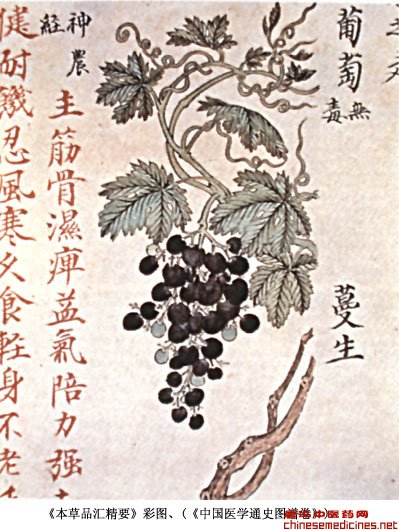 葡萄
無毒
蔓生
神農
經
主筋骨濕痺益氣陪力强
健耐饑忍風寒久食軽身不老
《本草品汇精要》彩图、(《中国医学通史图谱卷》)
中医药网
chinesemedicines.net